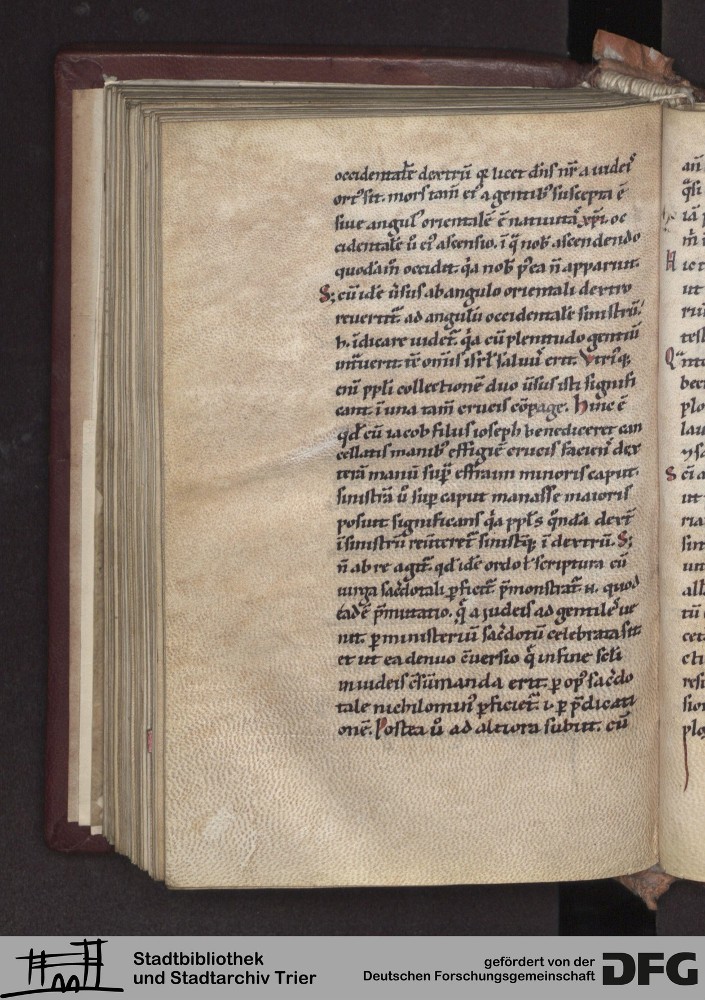 occidentalē dextrū qꝛ licet dn̄s nr̄ a iudeis
ortꝰ sit. mors tam̄ eiꝰ a gentibꝫ suscepta ē
siue angulꝰ orientalē ē natiuitas xp̄i. oc
cidentale ū eiꝰ ascensio. ī q̄ nob ascendendo
quodam̄ occidit. q̄a nob p̄ea n̄ apparuit.
S; cū idē ūsus ab angulo orientali dextro
reuertit̄ ad angulū occidentale sinistrū.
h. īdicare uidet̄. q̄a cū plenitudo gentiū
int̄uerit tc̄ om̄is isrl̄ saluus erit. Vtriꝰq;
eni ppli collectionē duo ūsus isti signifi
cant. ī una tam̄ crucis cōpage. Hinc ē
qd̄ cū iacob filios ioseph benediceret can
cellatis manibꝫ effigiē crucis faciens dex
terā manū sup̄ effraim minoris caput.
sinistrā ū sup̄ caput manasse maioris
posuit significans q̄a ppl̄s q̄ndā dext̄
ī sinistrū reūteret̄ sinist̄q; ī dextrū. S;
n̄ ab re agit̄. qd̄ idē ordo ł scriptura cū
uirga sac̄dotali ꝑficit̄. p̄monstrat̄ .n. quod
eadē p̄mutatio. q̄ a iudeis ad gentiles ue
nit. ꝑ ministeriū sac̄dotū celebrata sit
et ut ea denuo c̄uersio q̄ in fine scl̄i
in iudeis c̄sūmanda erit. ꝑ opꝰ sac̄do
tale nichilominꝰ ꝑficiet̄. .i. ꝑ p̄dicati
onē. Postea ū ad altiora subit̄. cū
Stadtbibliothek
und Stadtarchiv Trier
gefördert von der
Deutschen Forschungsgemeinschaft
DFG